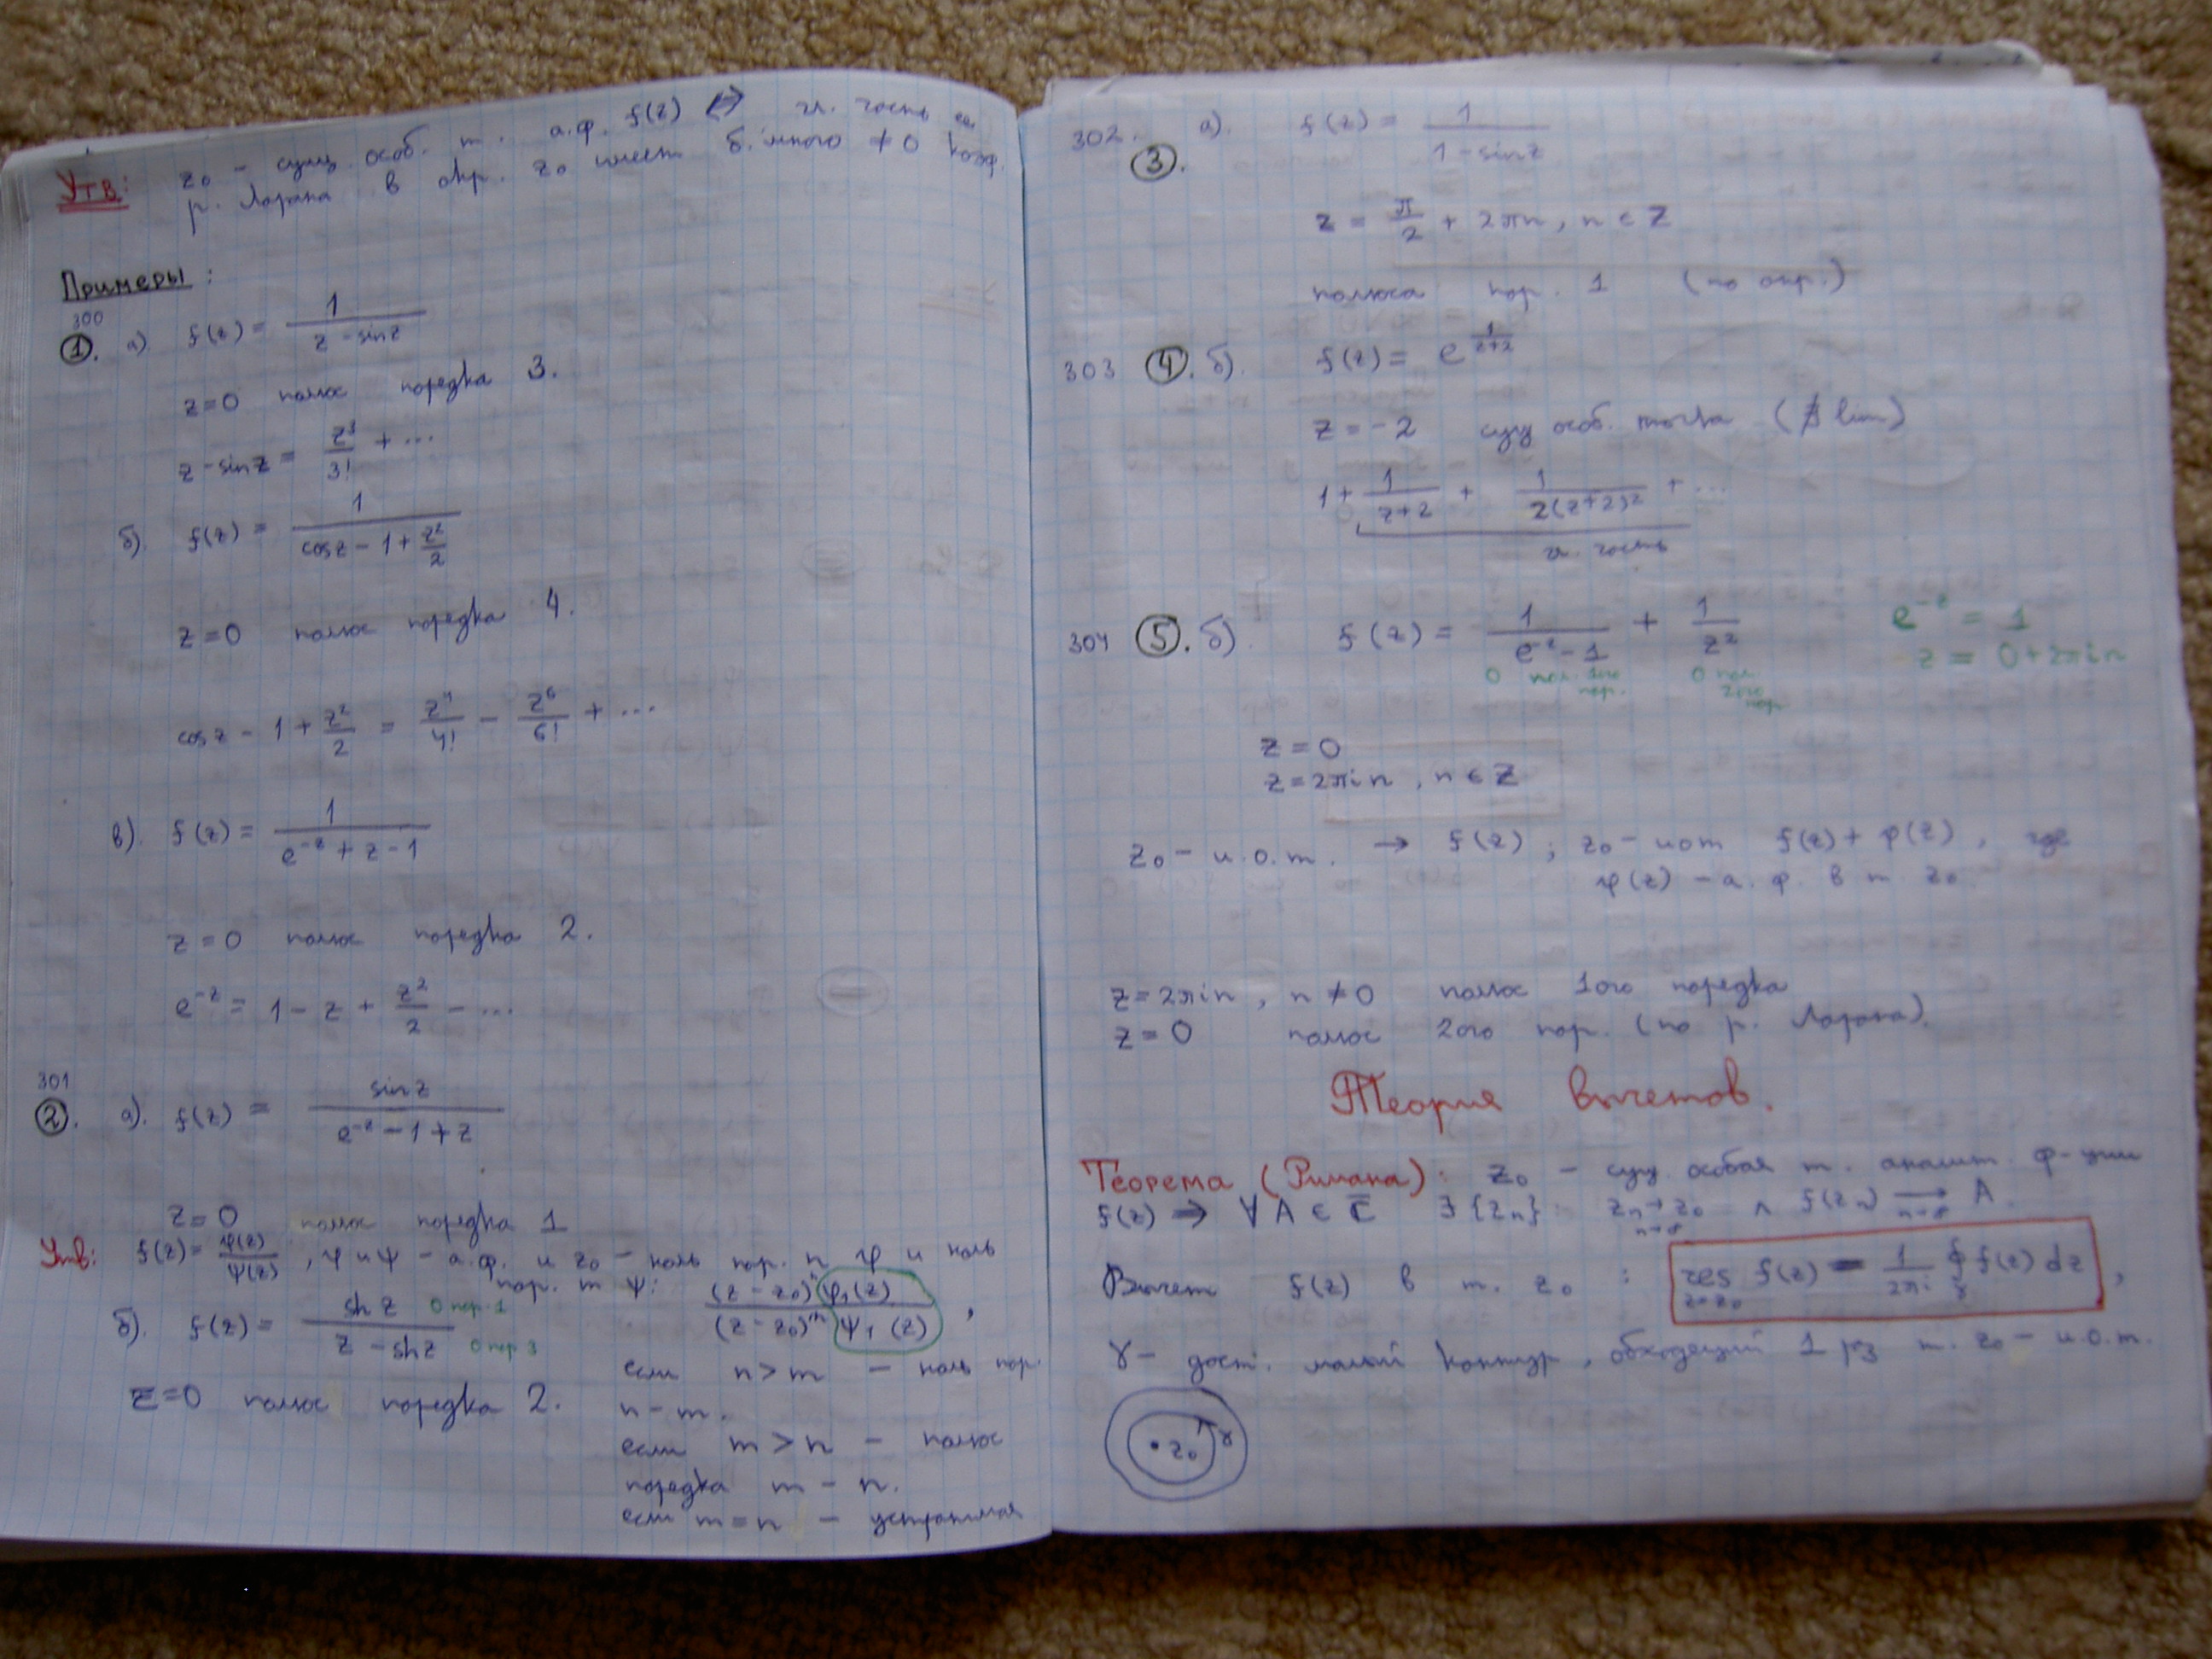 Утв: z₀ – сущ. особ. т. а.ф. f(z) ⇔ гл. часть ее
р. Лорана в окр. z₀ имеет б. много ≠ 0 коэф.
Примеры:
300
①. а). f(z) = 1/(z - sin z)
z=0 полюс порядка 3.
z - sin z = z³/3! + ...
б). f(z) = 1/(cos z - 1 + z²/2)
z=0 полюс порядка 4.
cos z - 1 + z²/2 = z⁴/4! - z⁶/6! + ...
в). f(z) = 1/(e^(-z) + z - 1)
z=0 полюс порядка 2.
e^(-z) = 1 - z + z²/2 - ...
301
②. а). f(z) = sin z/(e^(-z) - 1 + z)
z=0 полюс порядка 1
Утв: f(z) = φ(z)/ψ(z), φ и ψ – а.ф. и z₀ – ноль пор. n φ и ноль
пор. m ψ: (z - z₀)ⁿ φ₁(z)/(z - z₀)ᵐ ψ₁(z),
если n > m – ноль пор.
n - m.
если m > n – полюс
порядка m - n.
если m = n – устранимая
б). f(z) = sh z/(z - sh z) 0 пор. 1 0 пор 3
z=0 полюс порядка 2.
302. ③. а). f(z) = 1/(1 - sin z)
z = π/2 + 2πn, n ∈ Z
полюса пор. 1 (по опр.)
303 ④. б). f(z) = e^(1/(z+2))
z = -2 сущ особ. точка (∄ lim)
1 + 1/(z+2) + 1/(2(z+2)²) + ...
гл. часть
304 ⑤. б). f(z) = 1/(e^(-z) - 1) + 1/z² e^(-z) = 1
0 пол. 1ого пор. 0 пол. 2ого пор. -z = 0 + 2πin
z = 0
z = 2πin, n ∈ Z
z₀ – и.о.т. → f(z); z₀ – иот f(z) + φ(z), где
φ(z) – а.ф. в т. z₀.
z = 2πin, n ≠ 0 полюс 1ого порядка
z = 0 полюс 2ого пор. (по р. Лорана).
Теория вычетов.
Теорема (Римана): z₀ – сущ. особая т. аналит. ф-ции
f(z) ⇒ ∀A ∈ C̅ ∃{zₙ}: zₙ → z₀ n→∞ ∧ f(zₙ) → n→∞ A.
Вычет f(z) в т. z₀: res z=z₀ f(z) = 1/(2πi) ∮γ f(z) dz,
γ – дост. малый контур, обходящий 1 рз т. z₀ – и.о.т.
z₀ γ